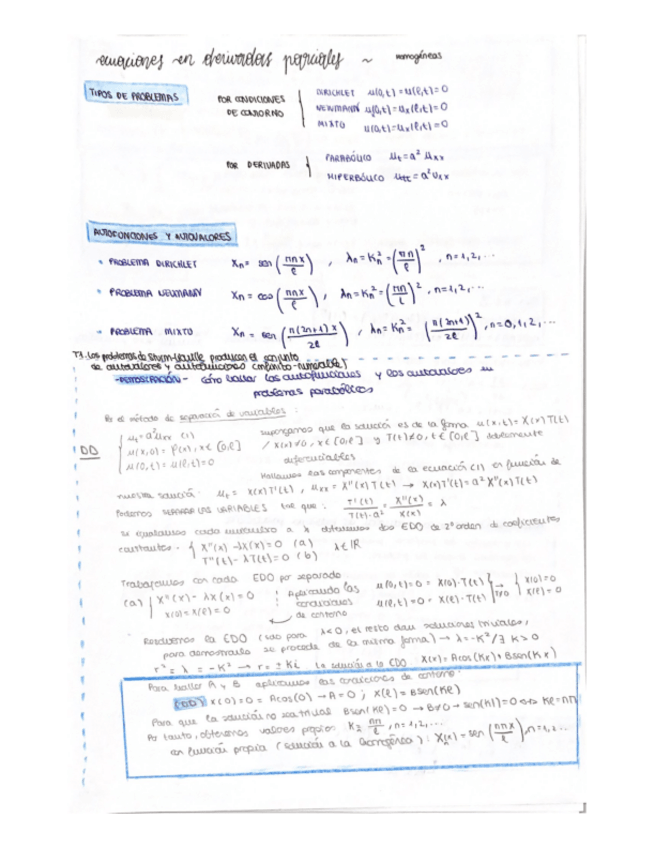 ecuaciones en derivadas parciales ~ homogéneas
TIPOS DE PROBLEMAS
POR CONDICIONES DE CONTORNO
DIRICHLET u(0,t)=u(ℓ,t)=0
NEUMANN ux(0,t)=ux(ℓ,t)=0
MIXTO u(0,t)=ux(ℓ,t)=0
POR DERIVADAS
PARABÓLICO ut=a² uxx
HIPERBÓLICO utt=a²uxx
AUTOFUNCIONES Y AUTOVALORES
• PROBLEMA DIRICHLET Xn= sen (πnx/ℓ) , λn=Kn²=(πn/ℓ)² , n=1,2,...
• PROBLEMA NEUMANN Xn= cos (πnx/ℓ) , λn=Kn²=(πn/ℓ)² , n=1,2,...
• PROBLEMA MIXTO Xn= sen (π(2n+1)x/2ℓ) , λn=Kn²=(π(2n+1)/2ℓ)² , n=0,1,2,...
T3. Los problemas de Sturm-Liouville producen el conjunto
de autovalores y autofunciones (infinito-numerable)
-DEMOSTRACIÓN- cómo hallar las autofunciones y los autovalores en
problemas parabólicos
Por el método de separación de variables:
DD
ut=a²uxx (1)
u(x,0)=f(x), x∈[0,ℓ]
u(0,t)=u(ℓ,t)=0
supongamos que la solución es de la forma u(x,t)=X(x)T(t)
/ X(x)≠0, x∈[0,ℓ] y T(t)≠0, t∈[0,ℓ] doblemente
diferenciables
Hallamos las componentes de la ecuación (1) en función de
nuestra solución: ut= X(x)T'(t) , uxx= X''(x)T(t) → X(x)T'(t)=a²X''(x)T(t)
Podemos SEPARAR LAS VARIABLES tal que: T'(t)/T(t)·a² = X''(x)/X(x) = λ
Si igualamos cada miembro a λ obtenemos dos EDO de 2º orden de coeficientes
constantes. X''(x)-λX(x)=0 (a) λ∈ℝ
T''(t)-λT(t)=0 (b)
Trabajamos con cada EDO por separado
(a) X''(x)-λX(x)=0
X(0)=X(ℓ)=0
Aplicando las condiciones de contorno
u(0,t)=0= X(0)·T(t)
u(ℓ,t)=0= X(ℓ)·T(t)
→ T≠0
X(0)=0
X(ℓ)=0
Resolvemos la EDO (solo para λ<0, el resto dan soluciones triviales,
para demostrarlo se procede de la misma forma) → λ=-K²/∃ K>0
r²=λ=-K² → r=±Ki La solución a la EDO X(x)=Acos(Kx)+Bsen(Kx)
Para hallar A y B aplicamos las condiciones de contorno:
(DD) X(0)=0=Acos(0)→A=0 ; X(ℓ)=Bsen(Kℓ)
Para que la solución no sea trivial Bsen(Kℓ)=0 → B≠0 → sen(Kℓ)=0 ↔ Kℓ=πn
Por tanto, obtenemos valores propios K= πn/ℓ , n=1,2,...
con función propia (solución a la homogénea): Xn(x)=sen (πnx/ℓ), n=1,2...